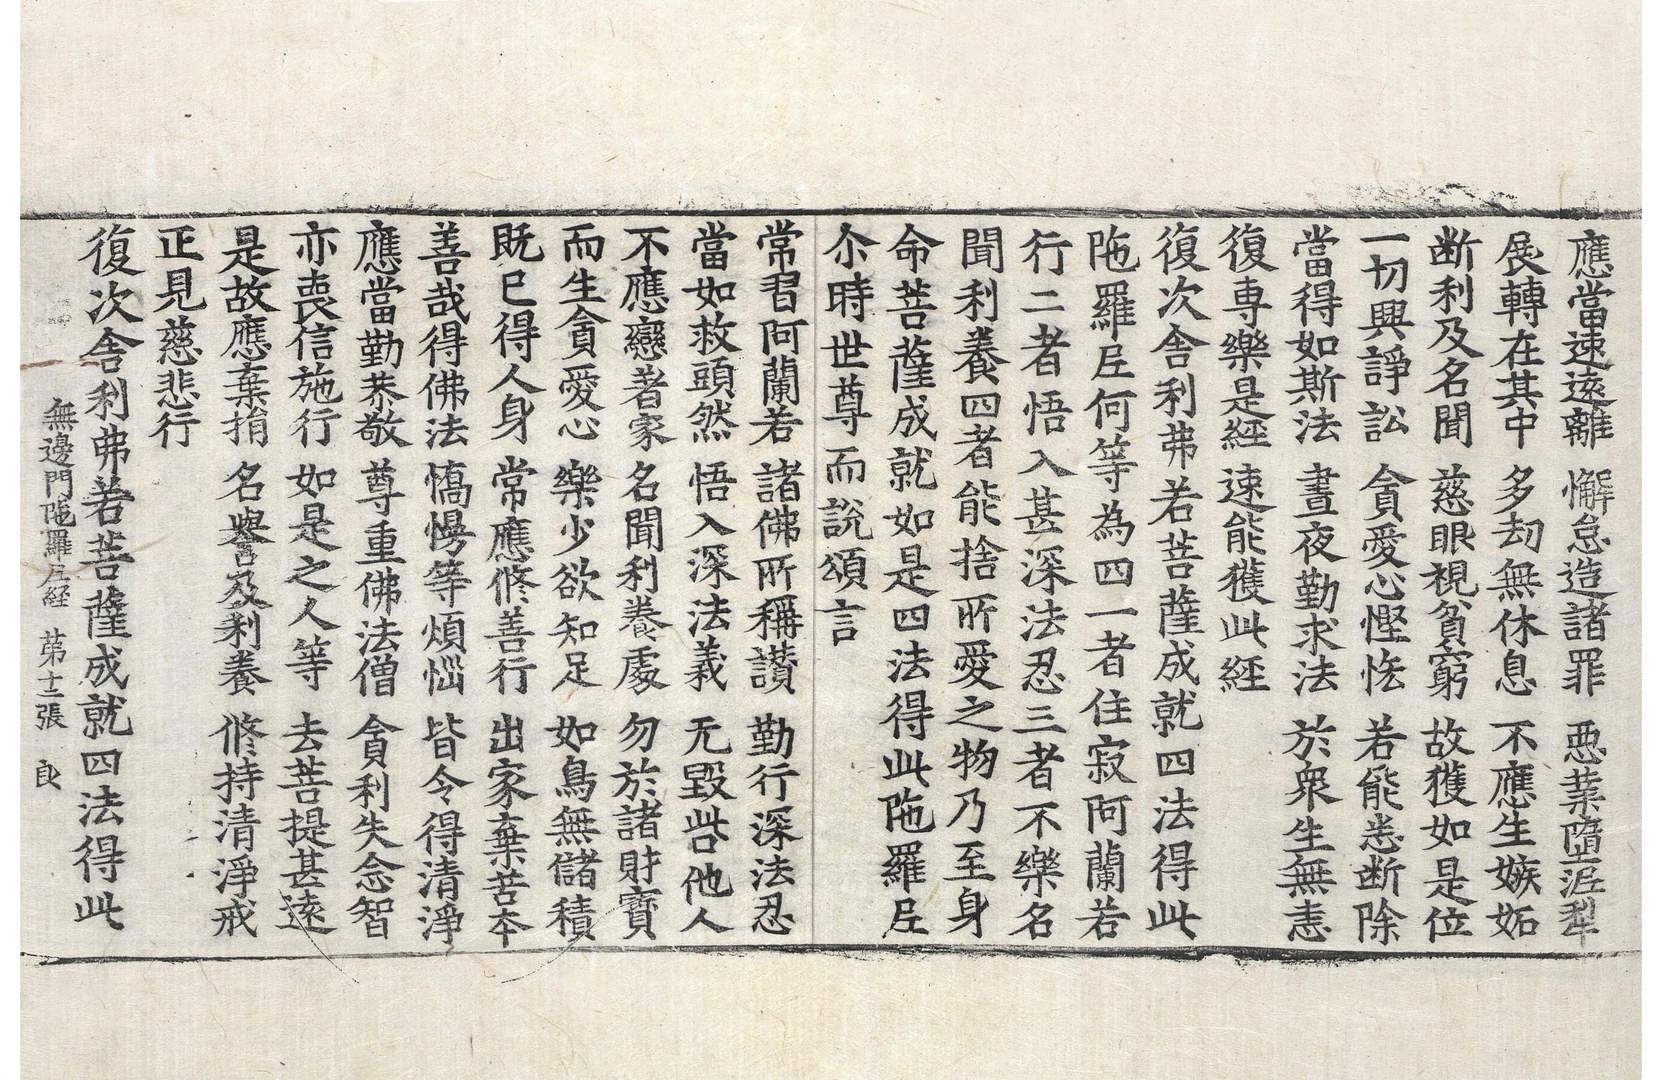 應當速遠離　懈怠造諸罪　悪業墮泥犁
展轉在其中　多劫無休息　不應生嫉妬
断利及名聞　慈眼視貧窮　故獲如是位
一切興諍訟　貪愛心慳悋　若能悉断除
當得如斯法　晝夜勤求法　於衆生無恚
復専樂是經　速能獲此經
復次舍利弗若菩薩成就四法得此
陁羅尼何等為四一者住寂阿蘭若
行二者悟入甚深法忍三者不樂名
聞利養四者能捨所愛之物乃至身
命菩薩成就如是四法得此陁羅尼
尒時世尊而說頌言
常習阿蘭若　諸佛所稱讃　勤行深法忍
當如救頭然　悟入深法義　无毀呰他人
不應戀著家　名聞利養處　勿於諸財寶
而生貪愛心　樂少欲知足　如鳥無儲積
既已得人身　常應修善行　出家棄苦本
善哉得佛法　憍慢等煩惱　皆令得清淨
應當勤恭敬　尊重佛法僧　貪利失念智
亦喪信施行　如是之人等　去菩提甚遠
是故應棄捐　名譽及利養　修持清淨戒
正見慈悲行
復次舍利弗若菩薩成就四法得此
無邊門陁羅尼経　苐十二張　良